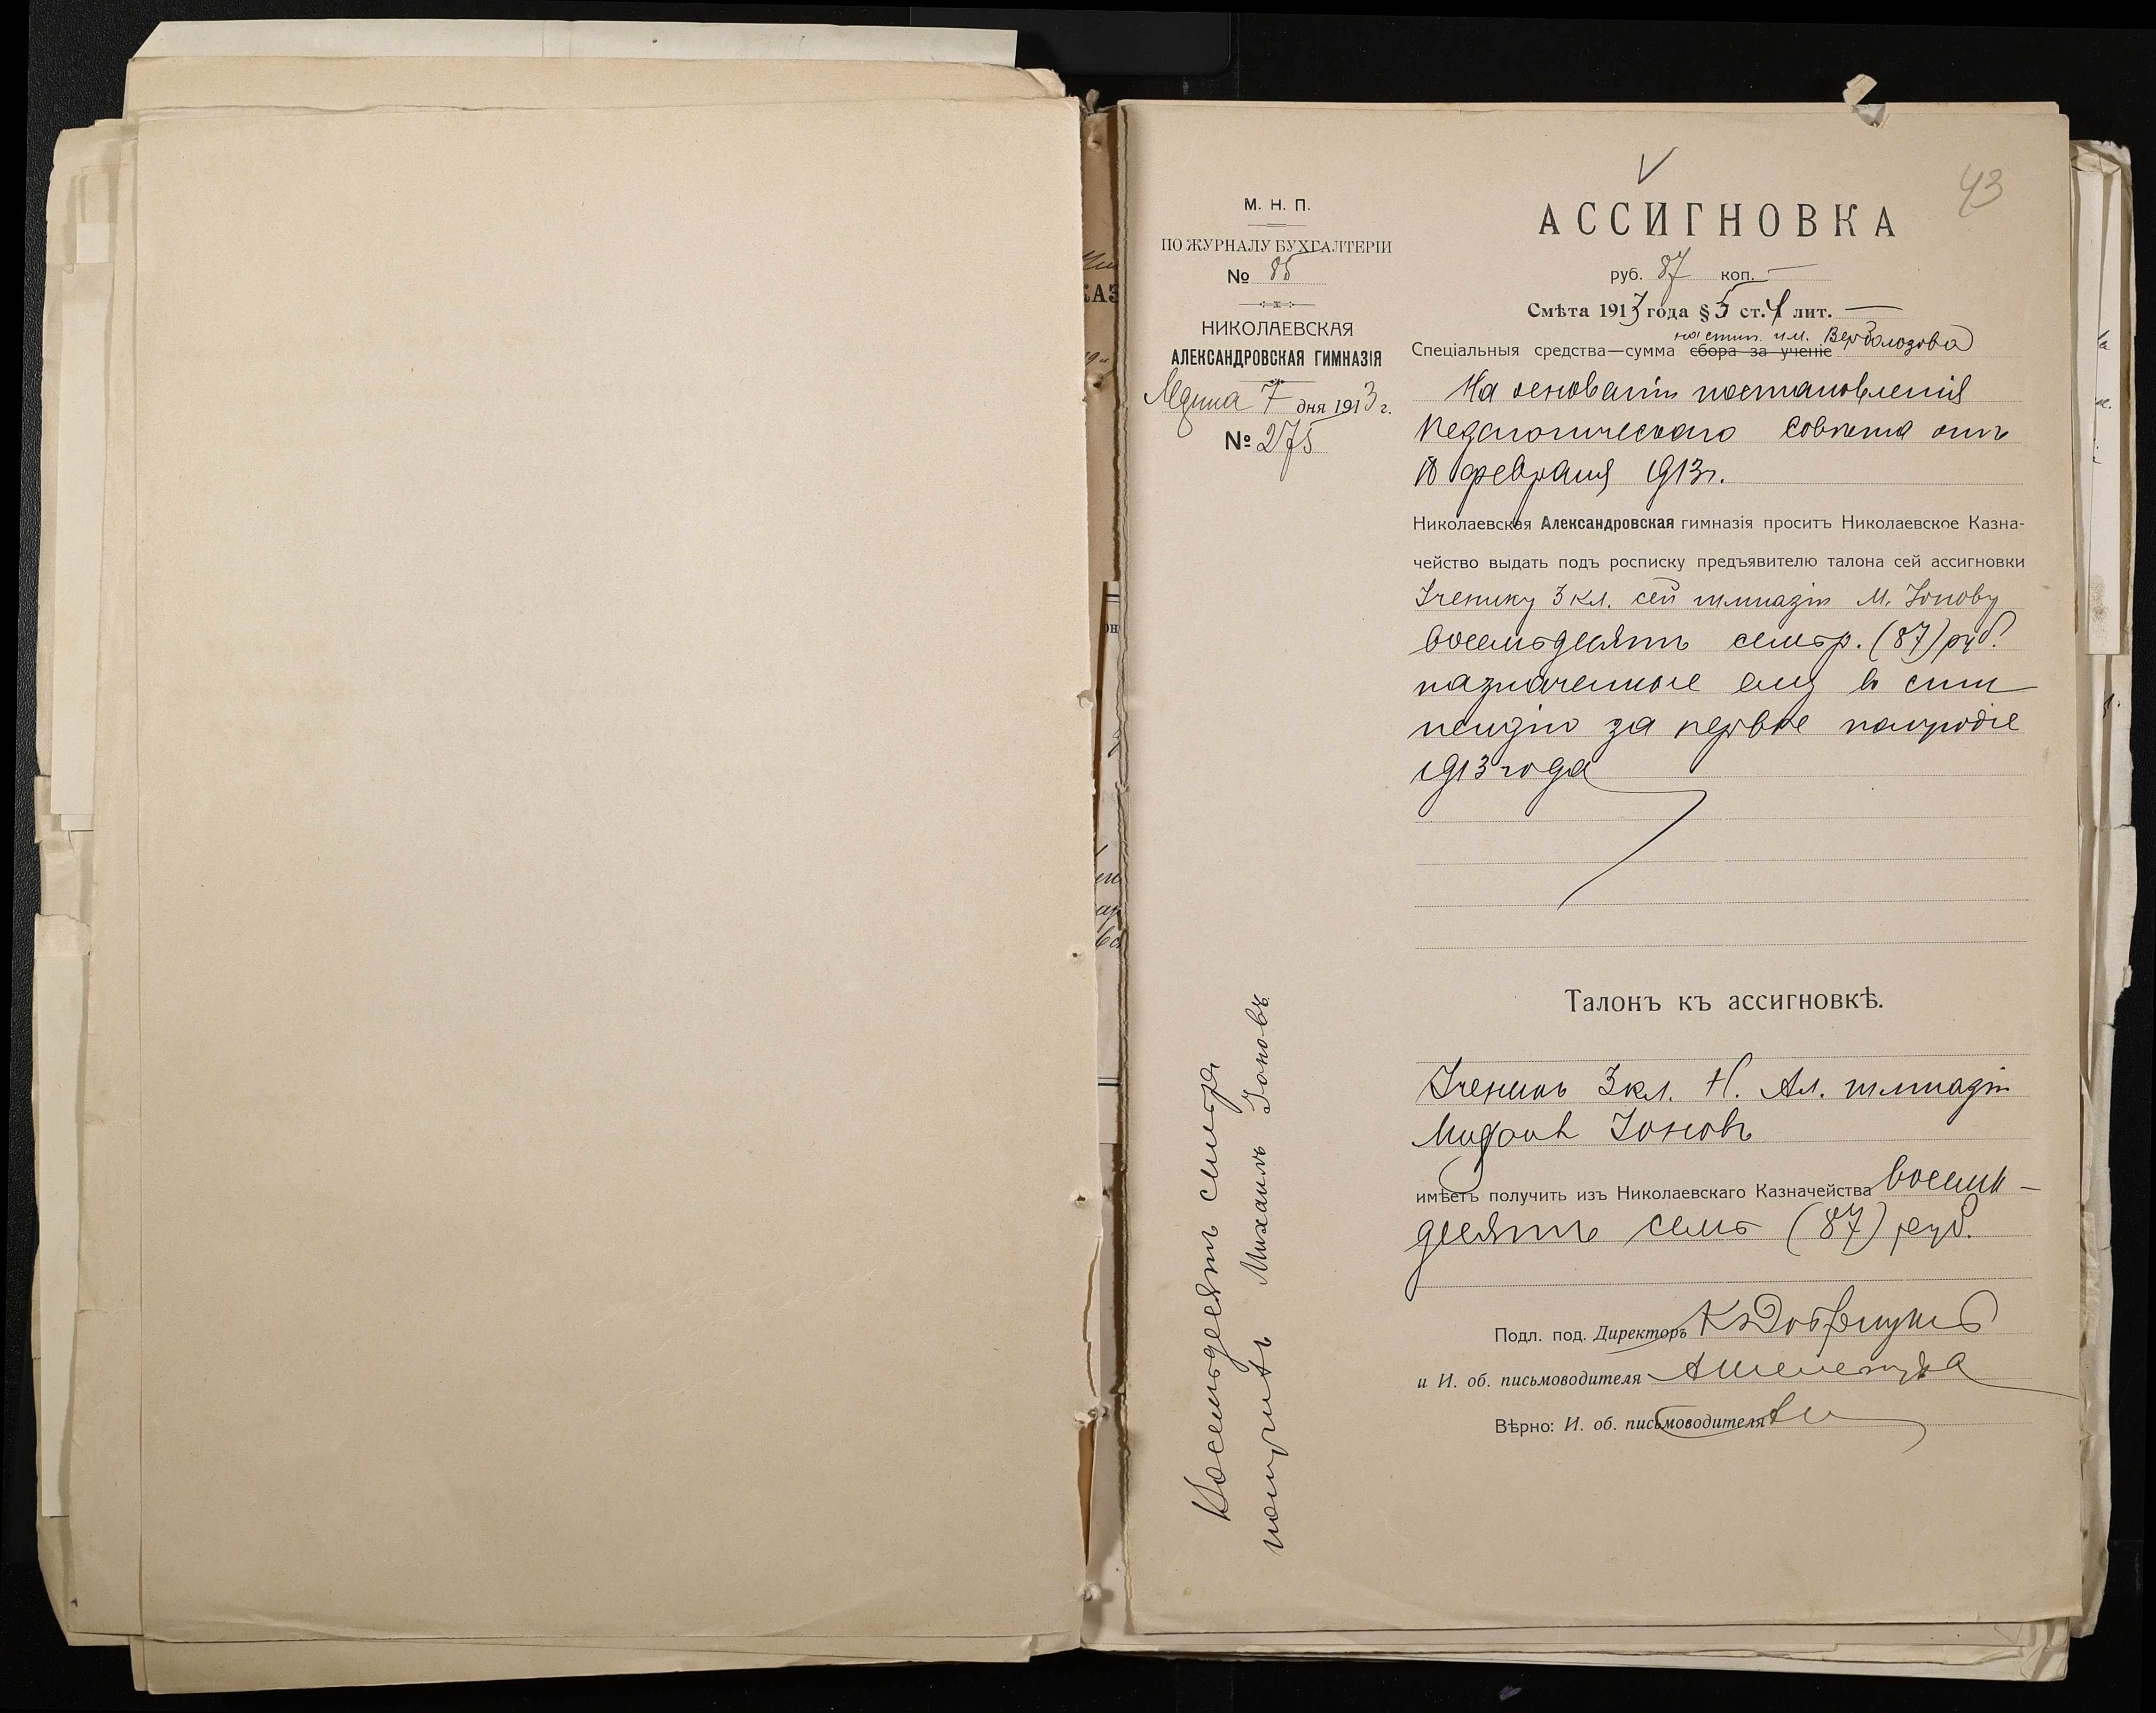 43
М. Н. П.
ПО ЖУРНАЛУ БУХГАЛТЕРІИ
№ 85
НИКОЛАЕВСКАЯ
АЛЕКСАНДРОВСКАЯ ГИМНАЗІЯ
7 дня 1913 г.
№ 275
АССИГНОВКА
руб. 87 коп. —
Смѣта 1913 года § 5 ст. 4 лит. —
на стип. им.
Спеціальныя средства—сумма сбора за ученіе
На основаніи постановленія
Педагогическаго Совѣта отъ
18 февраля 1913 г.
Николаевская Александровская гимназія проситъ Николаевское Казна-
чейство выдать подъ росписку предъявителю талона сей ассигновки
Ученику 3 кл. сей гимназіи М. Іонову
восемьдесятъ семь р. (87) руб.
назначенные ему в сти
пендію за первое полугодіе
1913 года
Талонъ къ ассигновкѣ.
Ученикъ 3 кл. Н. Ал. гимназіи
Михаилъ Іоновъ
имѣетъ получить изъ Николаевскаго Казначейства восемь-
десятъ семь (87) руб.
Подл. под. Директоръ
и И. об. письмоводителя
Вѣрно: И. об. письмоводителя
Восемьдесятъ семь р.
получилъ Михаилъ Іоновъ.